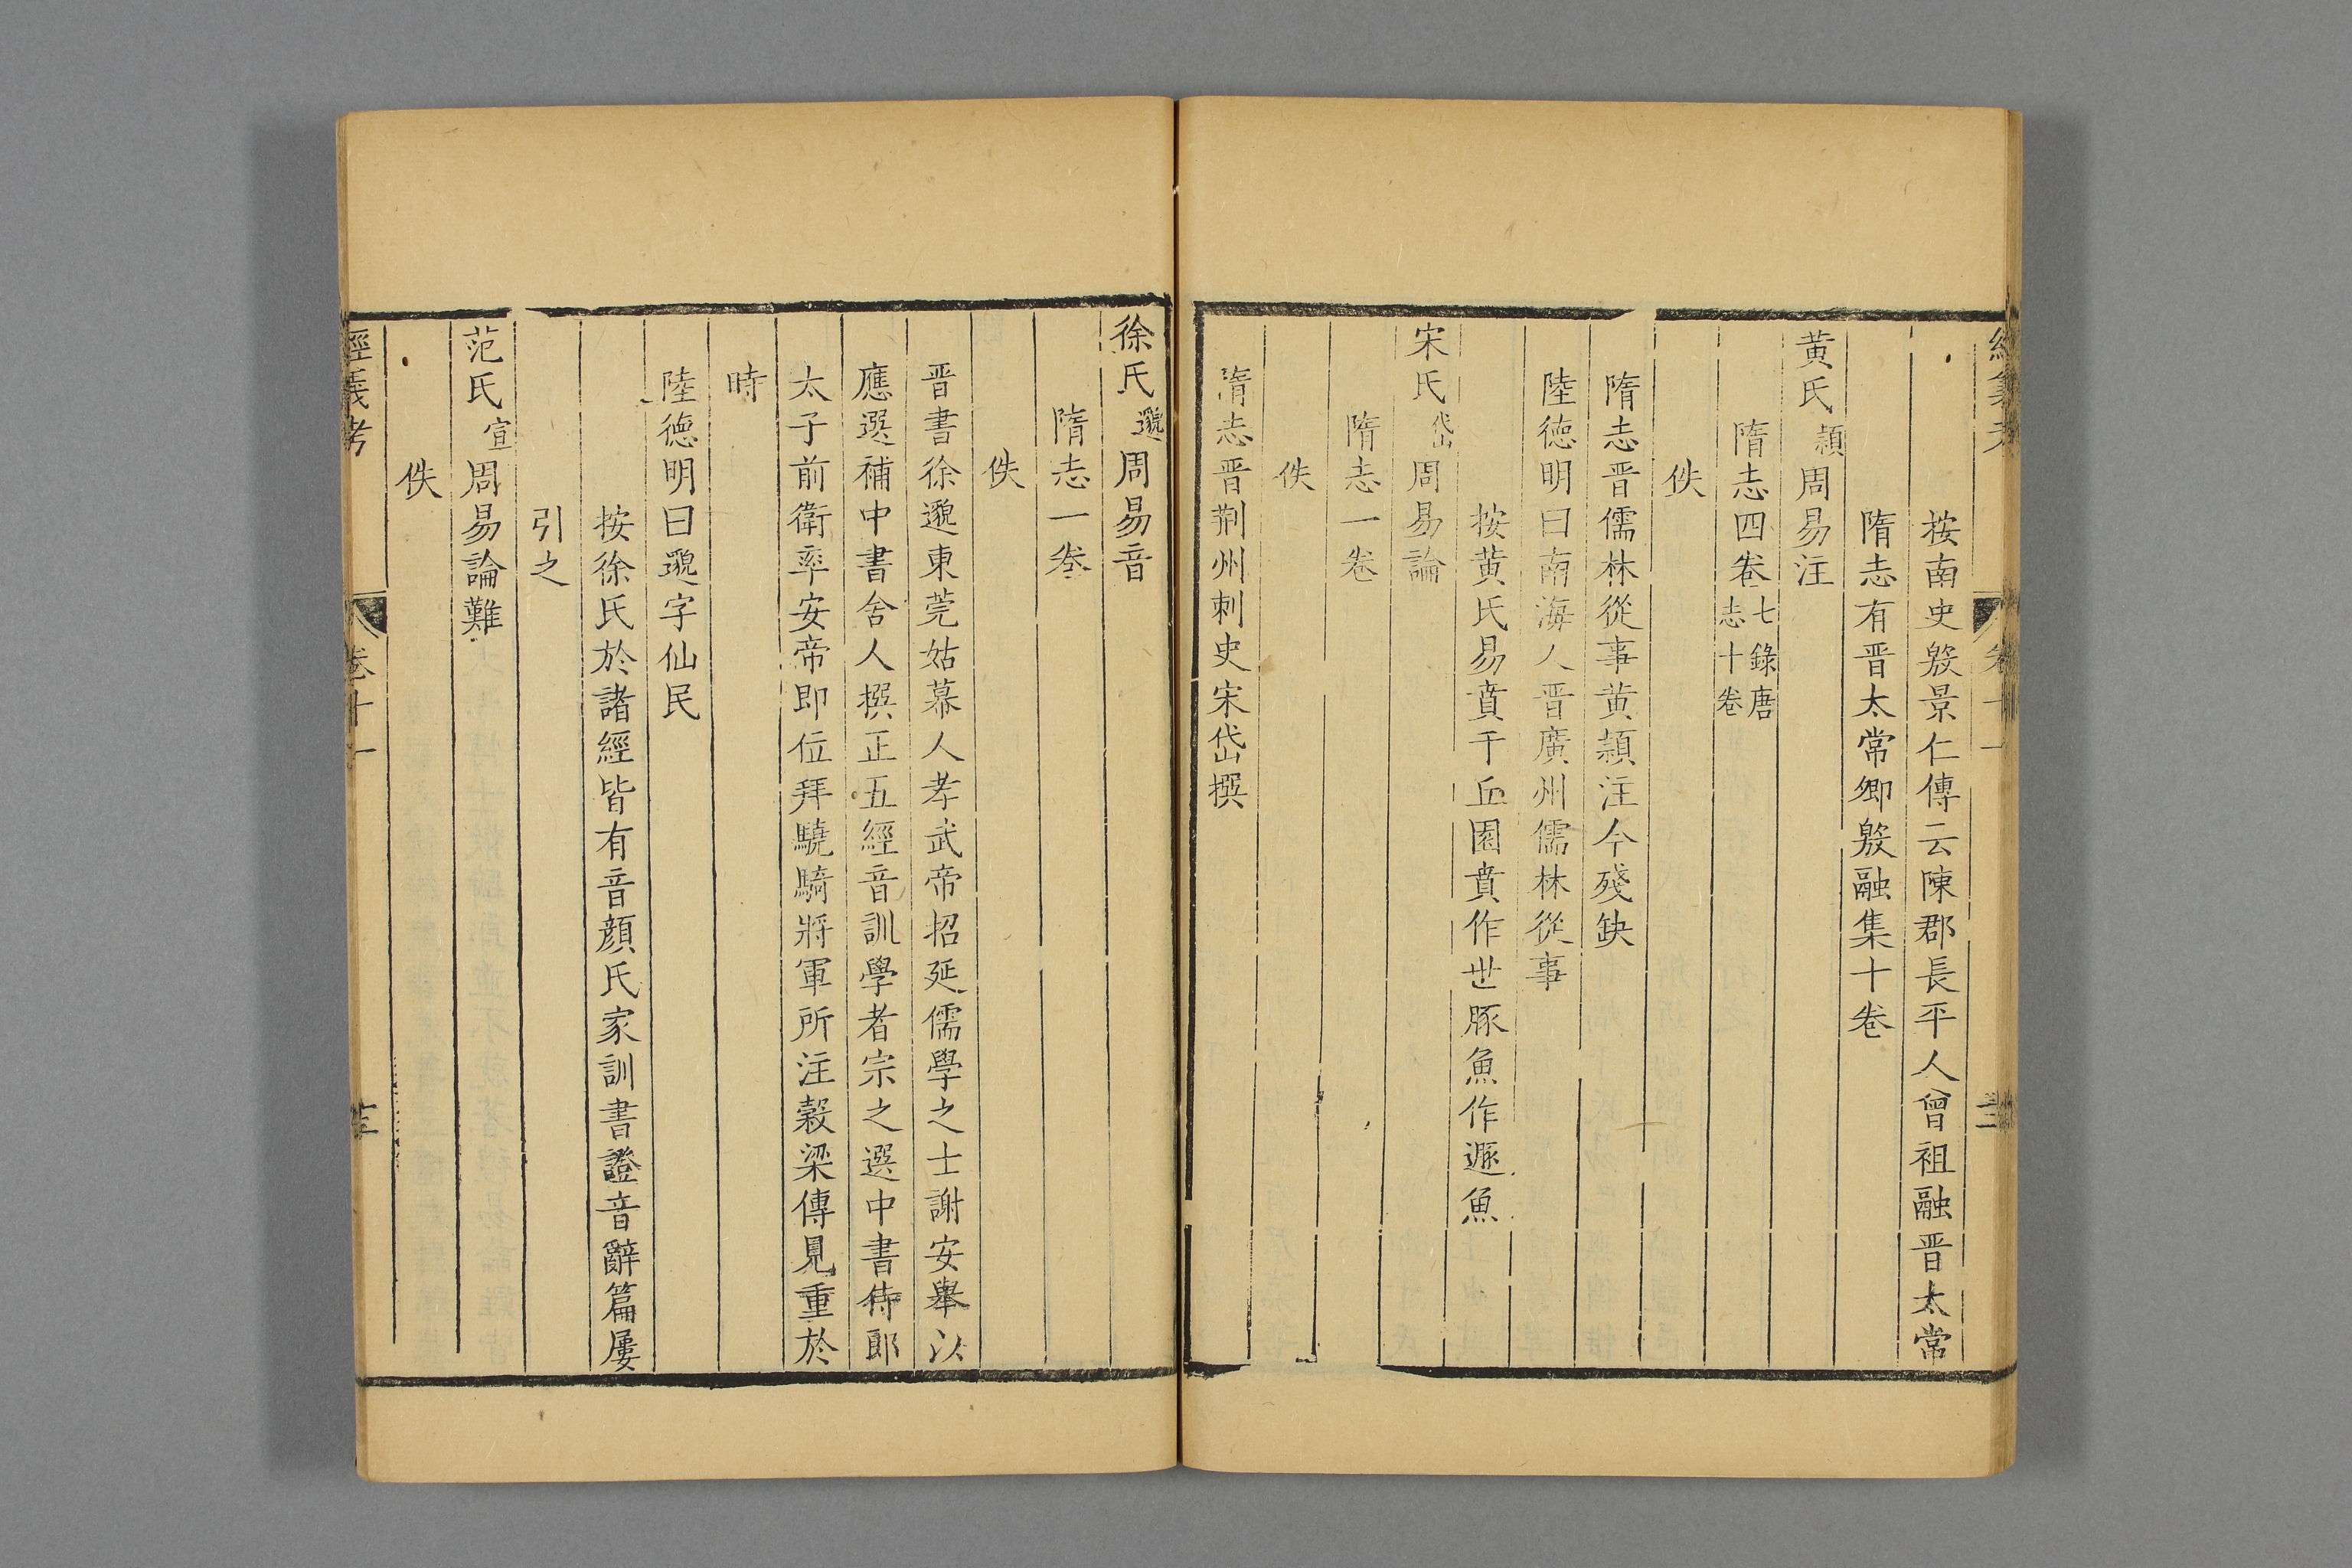 按南史殷景仁傳云陳郡長平人曾祖融晋太常
隋志有晋太常卿殷融集十卷
黄氏穎周易注
隋志四卷七錄唐志十卷
佚
隋志晋儒林從事黄穎注今殘缺
陸德明曰南海人晋廣州儒林從事
按黄氏易賁于丘園賁作世豚魚作遯魚
宋氏岱周易論
隋志一卷
佚
隋志晋荆州刺史宋岱撰
徐氏邈周易音
隋志一卷
佚
晋書徐邈東莞姑幕人孝武帝招延儒學之士謝安舉以
應選補中書舍人撰正五經音訓學者宗之選中書侍郎
太子前衛率安帝即位拜驍騎將軍所注穀梁傳見重於
時
陸德明曰邈字仙民
按徐氏於諸經皆有音顔氏家訓書證音辭篇屢
引之
范氏宣周易論難
佚
經義考 卷十一